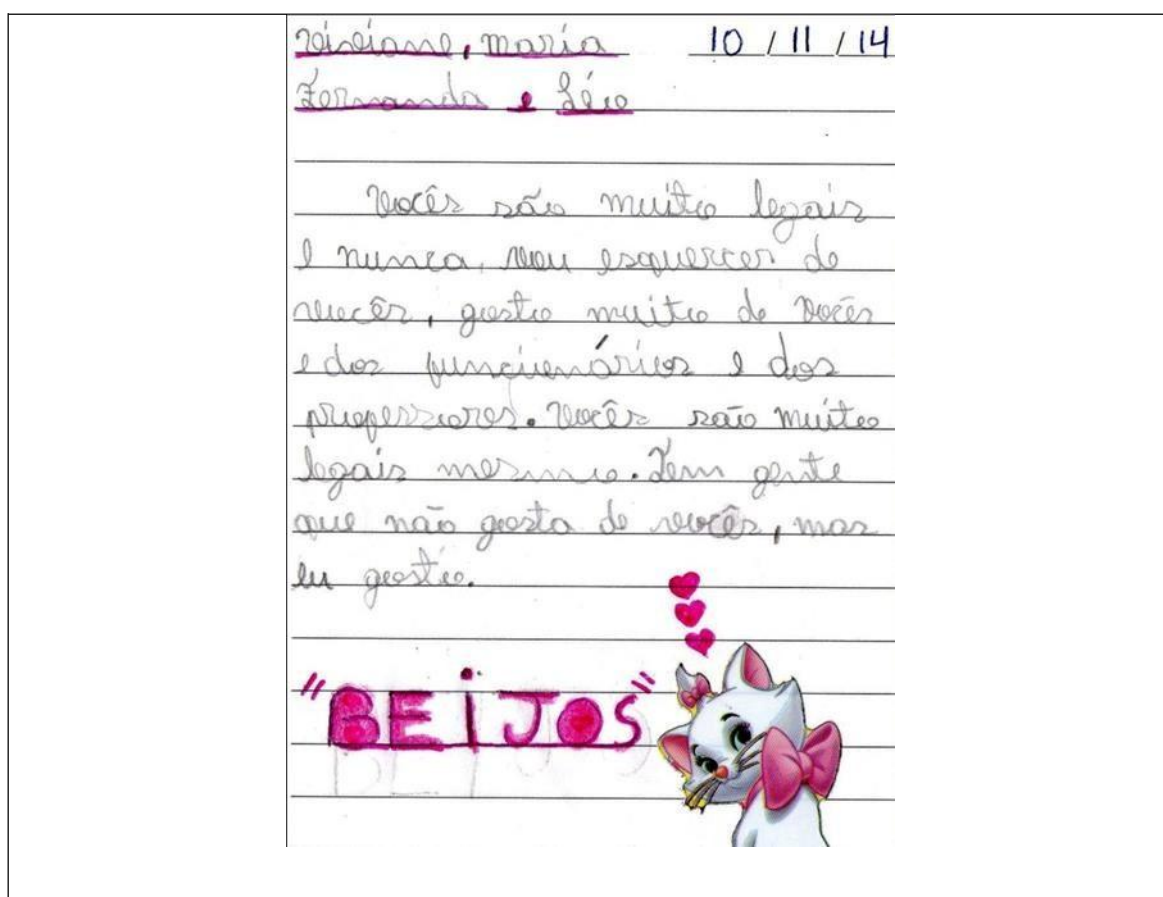 Viviane, maria 10 / 11 / 14
Fernanda e Léo
Vocês são muito legais
e nunca, vou esquercer de
vocês, gosto muito de Vocês
e dos funcionários e dos
professores. Vocês são muito
legais mesmo. Tem gente
que não gosta de vocês, mas
eu gosto.
"BEiJOS"